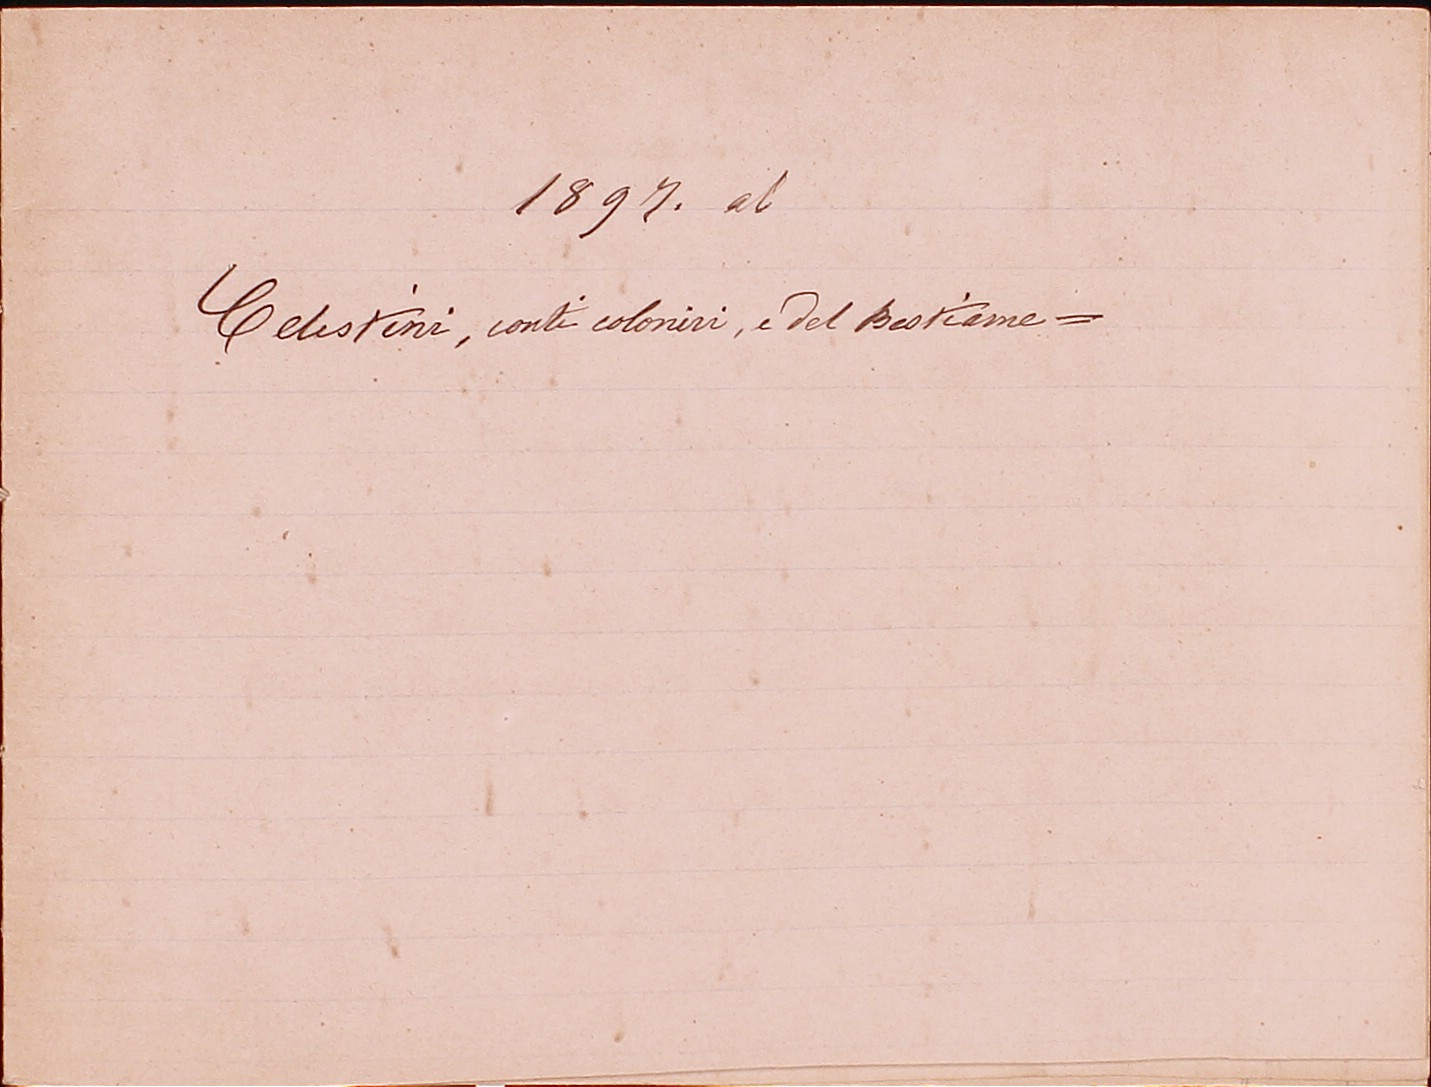 1897. al
Celestini, conti colonici, e del Bestiame =